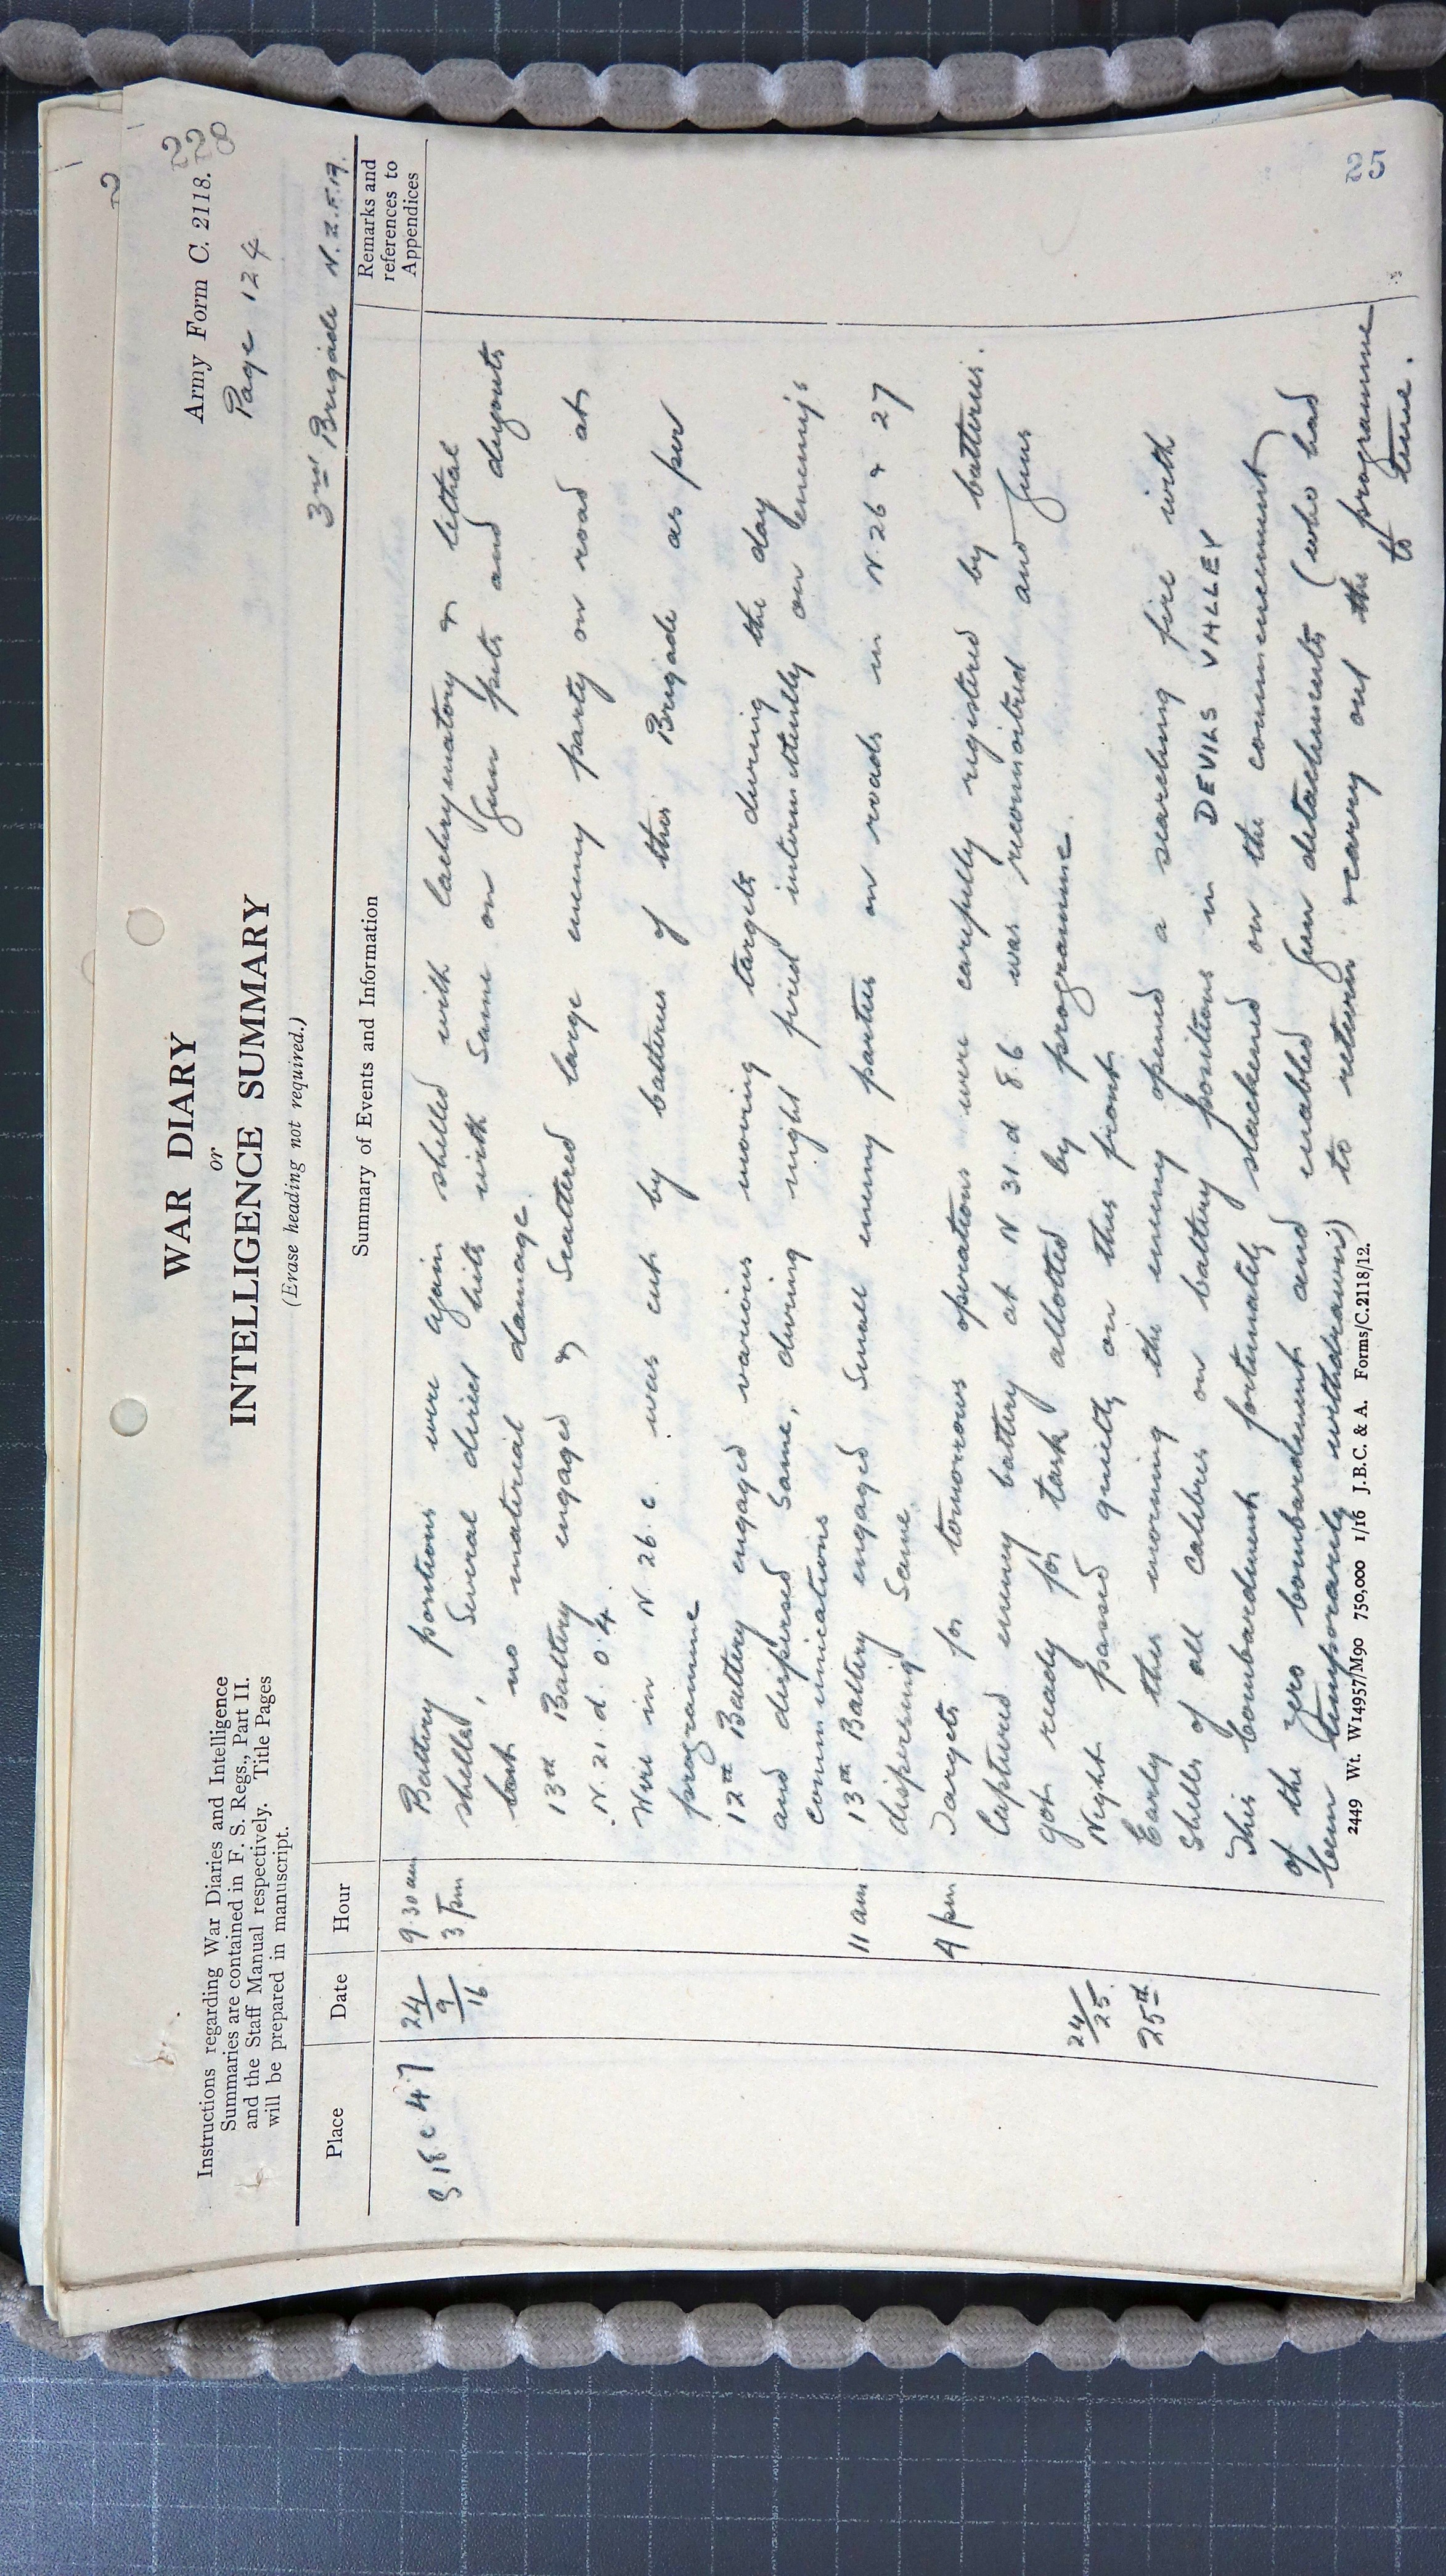 2
228
Army Form C. 2118.
Page 124
WAR DIARY
or
INTELLIGENCE SUMMARY
(Erase heading not required.)
Instructions regarding War Diaries and Intelligence
Summaries are contained in F. S. Regs., Part II.
and the Staff Manual respectively. Title Pages
will be prepared in manuscript.
3rd Brigade N.Z.F.A.
Place Date Hour Summary of Events and Information Remarks and
references to
Appendices
S 18 c 4.7 24/9/16 9.30 am Battery positions were again shelled with lachrymatory & lethal
3 pm shells, several direct hits with same on gun pits and dugouts
but no material damage.
13th Battery engaged & scattered large enemy party on road at
N. 21. d. 0.4.
Wire in N 26. c. was cut by batteries of this Brigade as per
programme
12th Battery engaged various moving targets during the day
and dispersed same, during night fired intermittently on enemy's
communications
11 am 13th Battery engaged small enemy parties on roads in N. 26 & 27
dispersing same.
4 pm Targets for tomorrows operations were carefully registered by batteries.
Captured enemy battery at N 31. d 8.6 was reconnoitred and guns
got ready for task allotted by programme.
24/25 Night passed quietly on this front.
25th Early this morning the enemy opened a searching fire with
shells of all calibres on battery positions in DEVILS VALLEY
This bombardment fortunately slackened on the commencement
of the zero bombardment and enabled gun detachments (who had
been temporarily withdrawn) to return & carry out the programme
to time.
2449 Wt. W14957/M90 750,000 1/16 J.B.C. & A. Forms/C.2118/12.
25